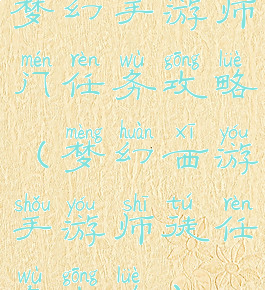 梦幻手游师
mén rèn wù gōng lüè
门任务攻略
mèng huàn xī yóu
（梦幻西游
shǒu yóu shī tú rèn
手游师徒任
wù gōng lüè